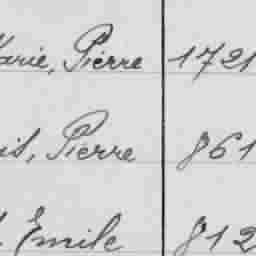 Marie, Pierre 1721
is, Pierre 861
Emile 812